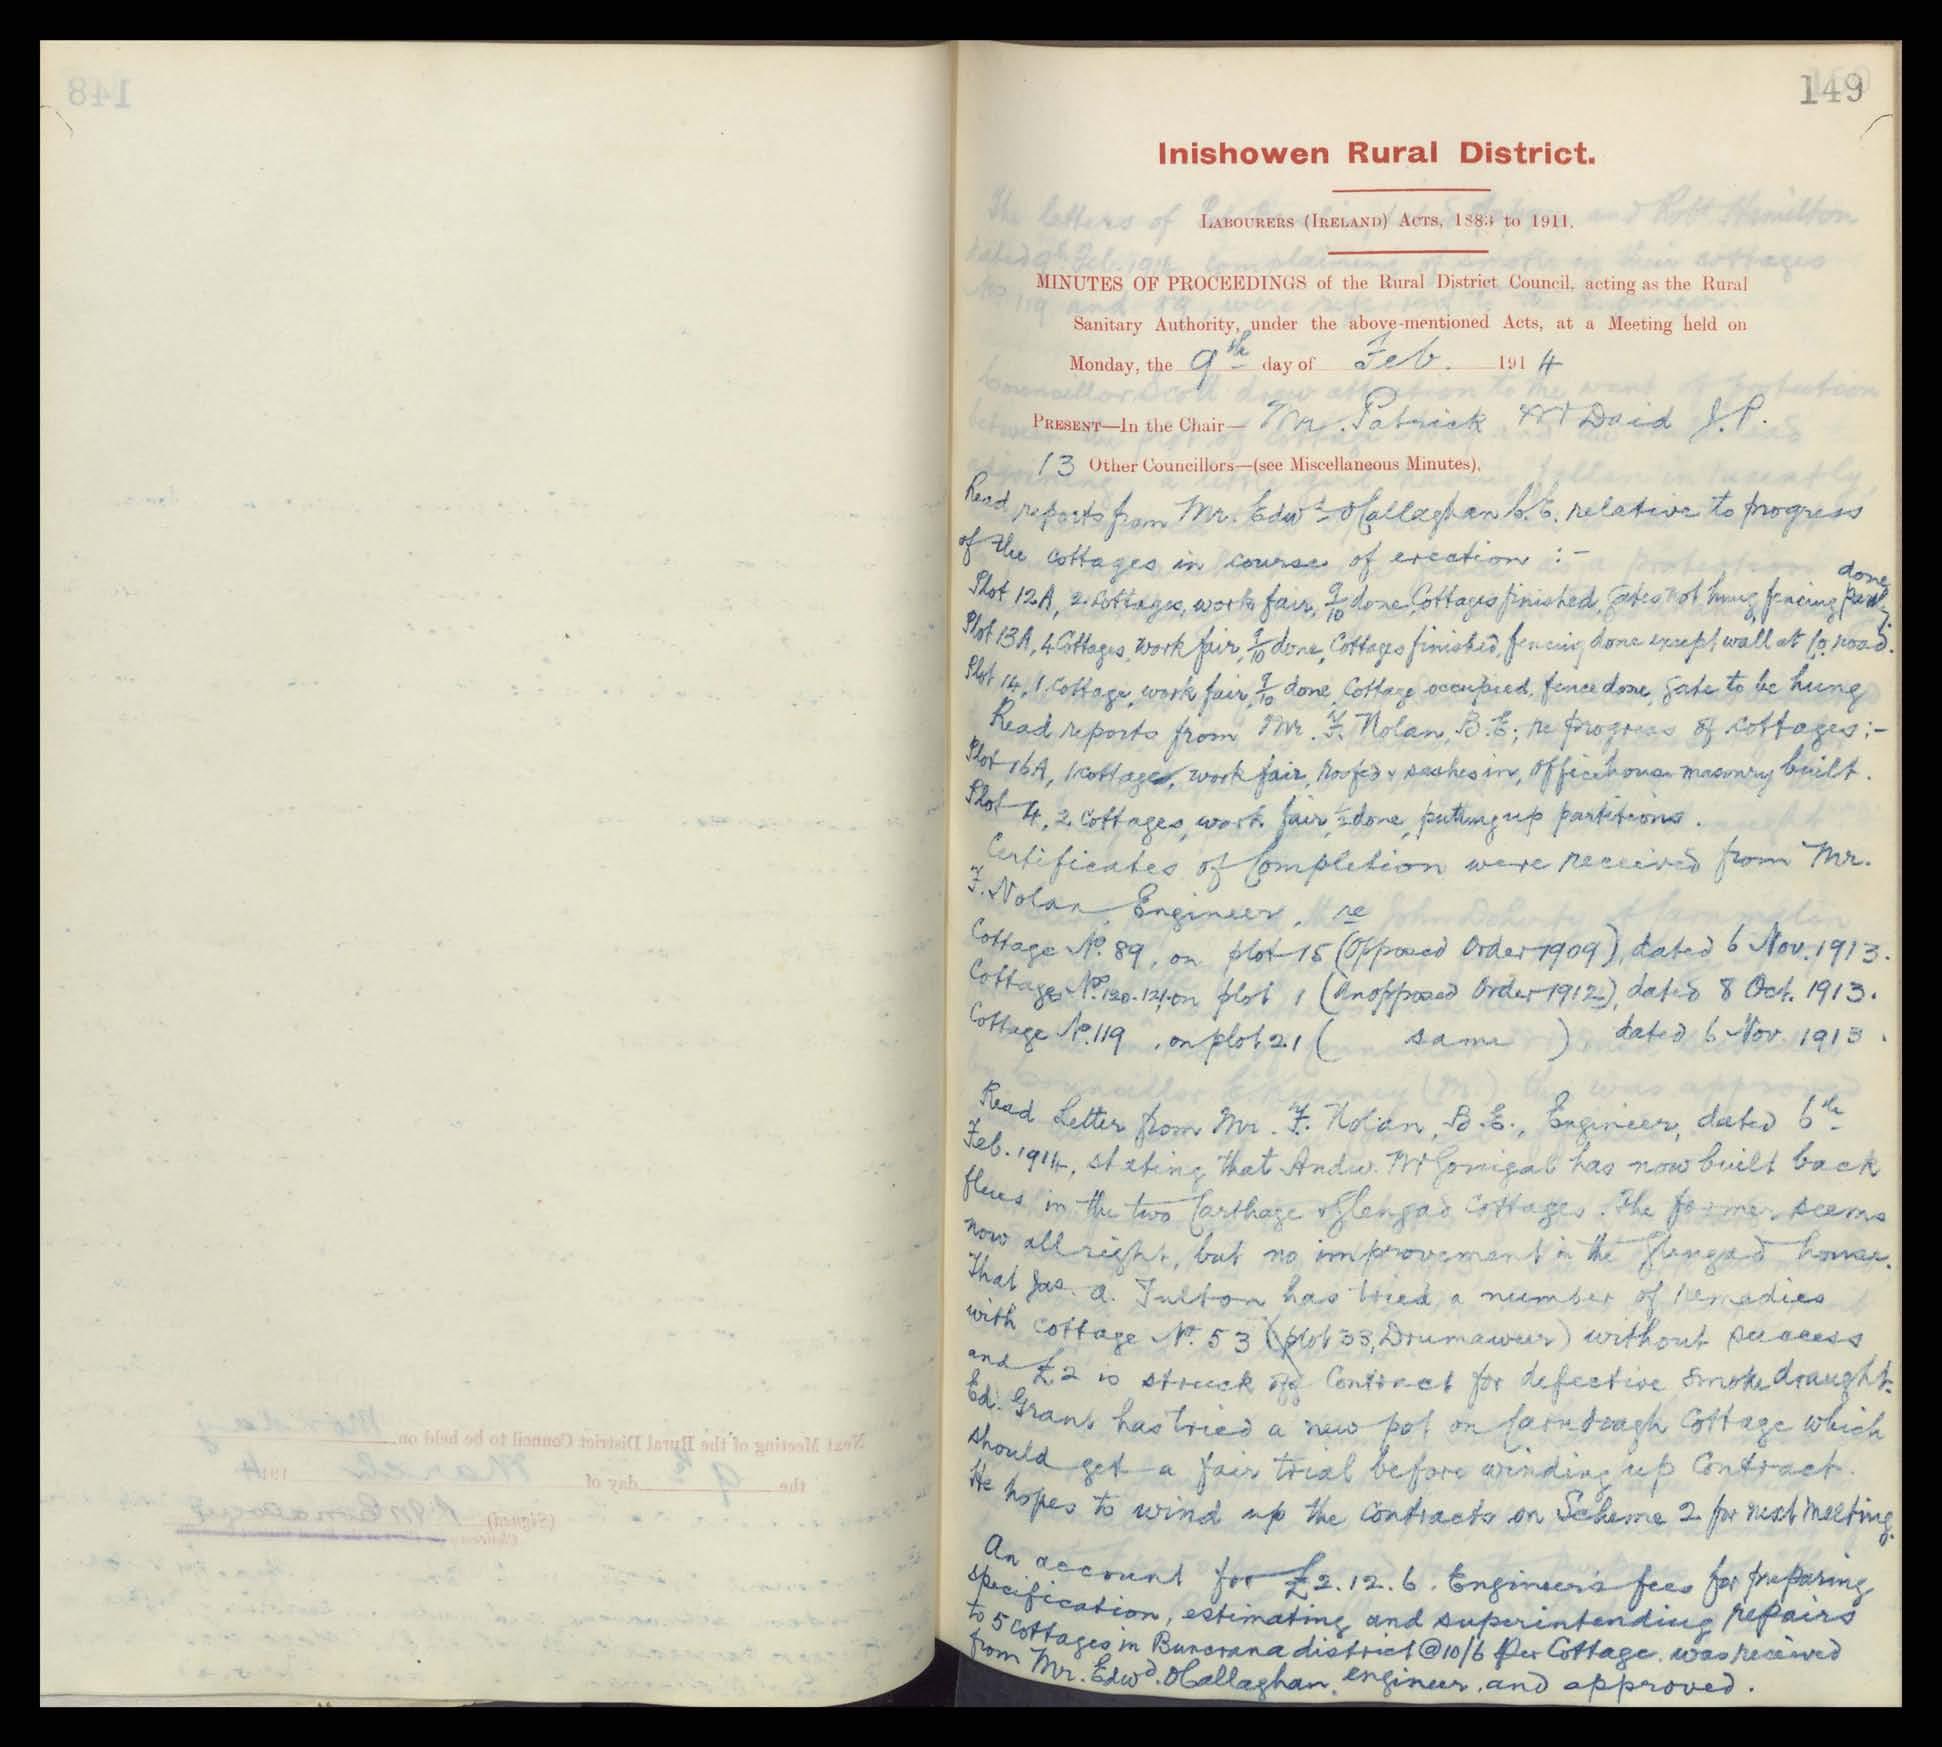 149
Inishowen Rural District.
LABOURERS (IRELAND) ACTS, 1883 to 1911.
MINUTES OF PROCEEDINGS of the Rural District Council, acting as the Rural
Sanitary Authority, under the above-mentioned Acts, at a Meeting held on
Monday, the 9th day of Feb. 1914
PRESENT—In the Chair— Mr. Patrick McDaid J.P.
13 Other Councillors—(see Miscellaneous Minutes),
Read reports from Mr. Edwd O'Callaghan C.E. relative to progress
of the cottages in course of erection :-
Plot 12A, 2 Cottages, work fair, 9/10 done, Cottages finished, gates not hung, fencing done
Plot 13A, 4 Cottages, work fair, 9/10 done, Cottages finished, fencing done except wall at Co. road.
Plot 14, 1 Cottage, work fair, 9/10 done, Cottage occupied, fence done, gate to be hung
Read reports from Mr. F. Nolan, B.E; re progress of cottages :-
Plot 16A, 1 cottage, work fair, roofed & sashes in, office house masonry built.
Plot 4, 2 Cottages, work fair, 1/2 done, putting up partitions.
Certificates of Completion were received from Mr.
F. Nolan, Engineer, re
Cottage No. 89, on plot 15 (Opposed Order 1909), dated 6 Nov. 1913.
Cottages Nos. 120-121, on plot 1 (Unopposed Order 1912), dated 8 Oct. 1913.
Cottage No. 119, on plot 21 ( same ) dated 6 Nov. 1913.
Read Letter from Mr. F. Nolan, B.E., Engineer, dated 6th
Feb. 1914, stating that Andw. McGonigal has now built back
flues in the two Carthage & Glengad Cottages. The former seems
now all right, but no improvement in the Glengad house.
That Jas. A. Fulton has tried a number of remedies
with cottage No. 53 (plot 33, Drumaweer) without success
and £2 is struck off Contract for defective smoke draught.
Ed. Grant has tried a new pot on Carndoagh Cottage which
should get a fair trial before winding up Contract.
He hopes to wind up the contracts on Scheme 2 for next meeting.
An account for £2.12.6. Engineer's fees for preparing
specification, estimating and superintending repairs
to 5 cottages in Buncrana district @ 10/6 per Cottage, was received
from Mr. Edwd. O'Callaghan, engineer, and approved.